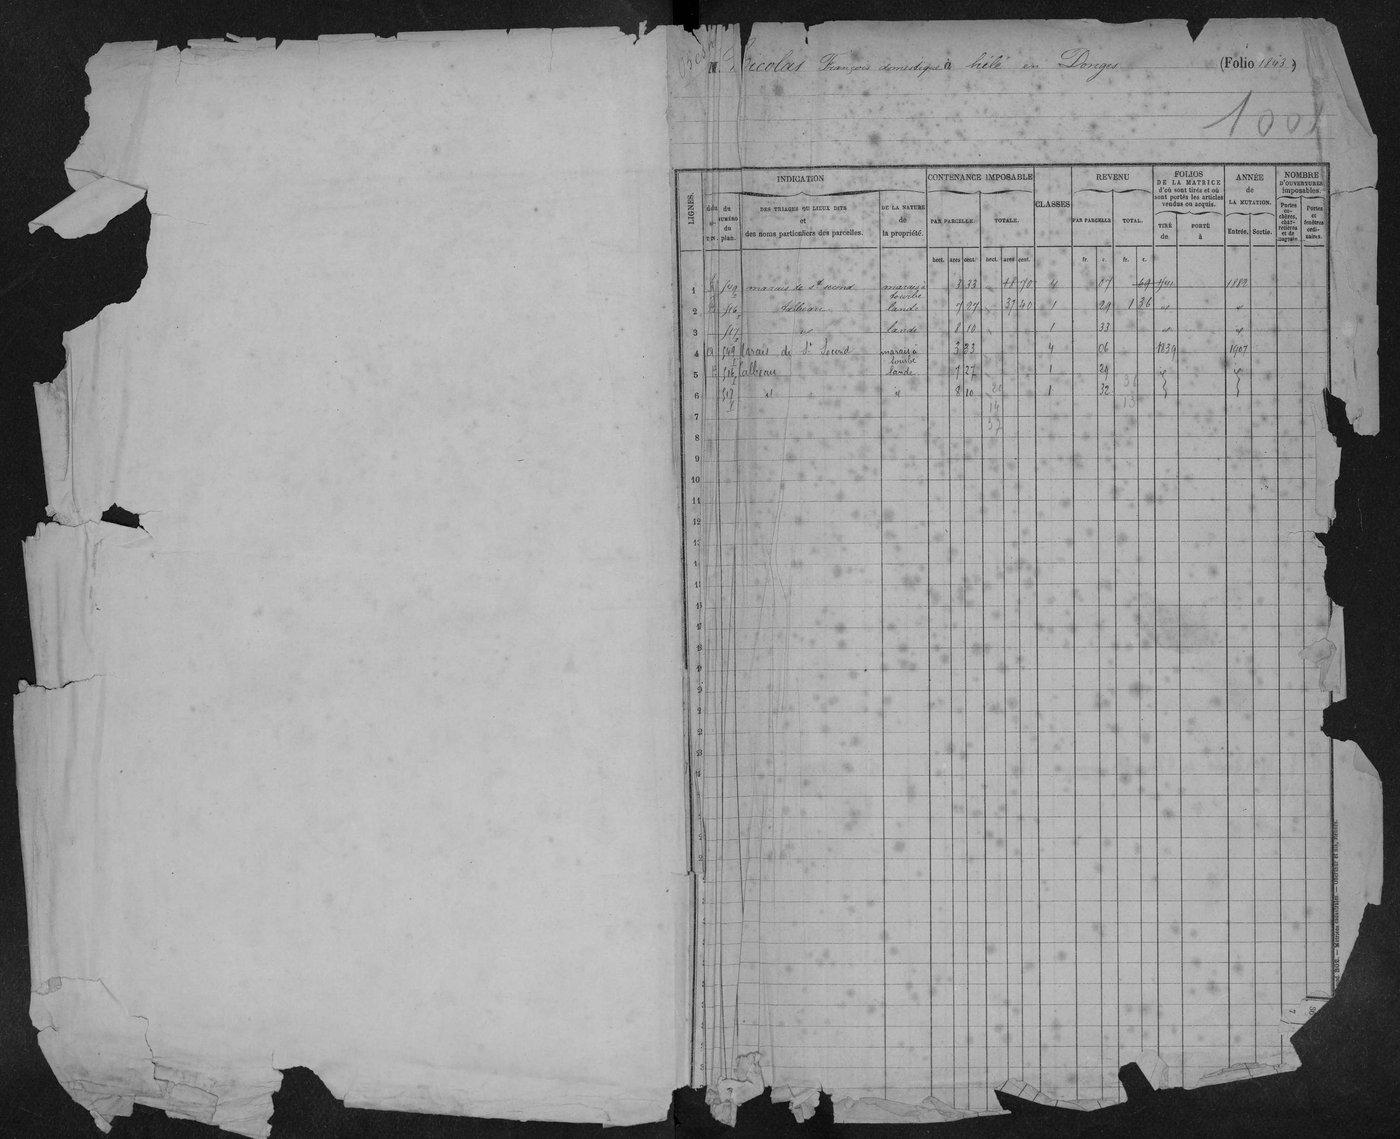 Nicolas François domestique à hélé en Donges (Folio 1843)
1001
LIGNES.
INDICATION
CONTENANCE IMPOSABLE
CLASSES
REVENU
FOLIOS DE LA MATRICE d'où sont tirés et où sont portés les articles vendus ou acquis.
ANNÉE de LA MUTATION.
NOMBRE D'OUVERTURES imposables.
du NUMÉRO du plan.
DES TRIAGES OU LIEUX DITS et des noms particuliers des parcelles.
DE LA NATURE de la propriété.
PAR PARCELLE. TOTALE.
PAR PARCELLE TOTAL.
TIRÉ de PORTÉ à
Entrée. Sortie.
Portes cochères, charretières et de magasin.
Portes et fenêtres ordinaires.
hect. ares cent. hect. ares cent. fr. c. fr. c.
1 549 marais de St second marais à tourbe 3 33 18 70 4 07 69 1882
2 516 Calbeau lande 7 27 37 40 1 29 1 36 "
3 517 " lande 8 10 1 33 " "
4 549 Marais de St Second marais à tourbe 3 33 4 06 1839 1907
5 516 Calbeau lande 7 27 1 29 "
6 517 id id 8 10 1 32
7
8
9
10
11
12